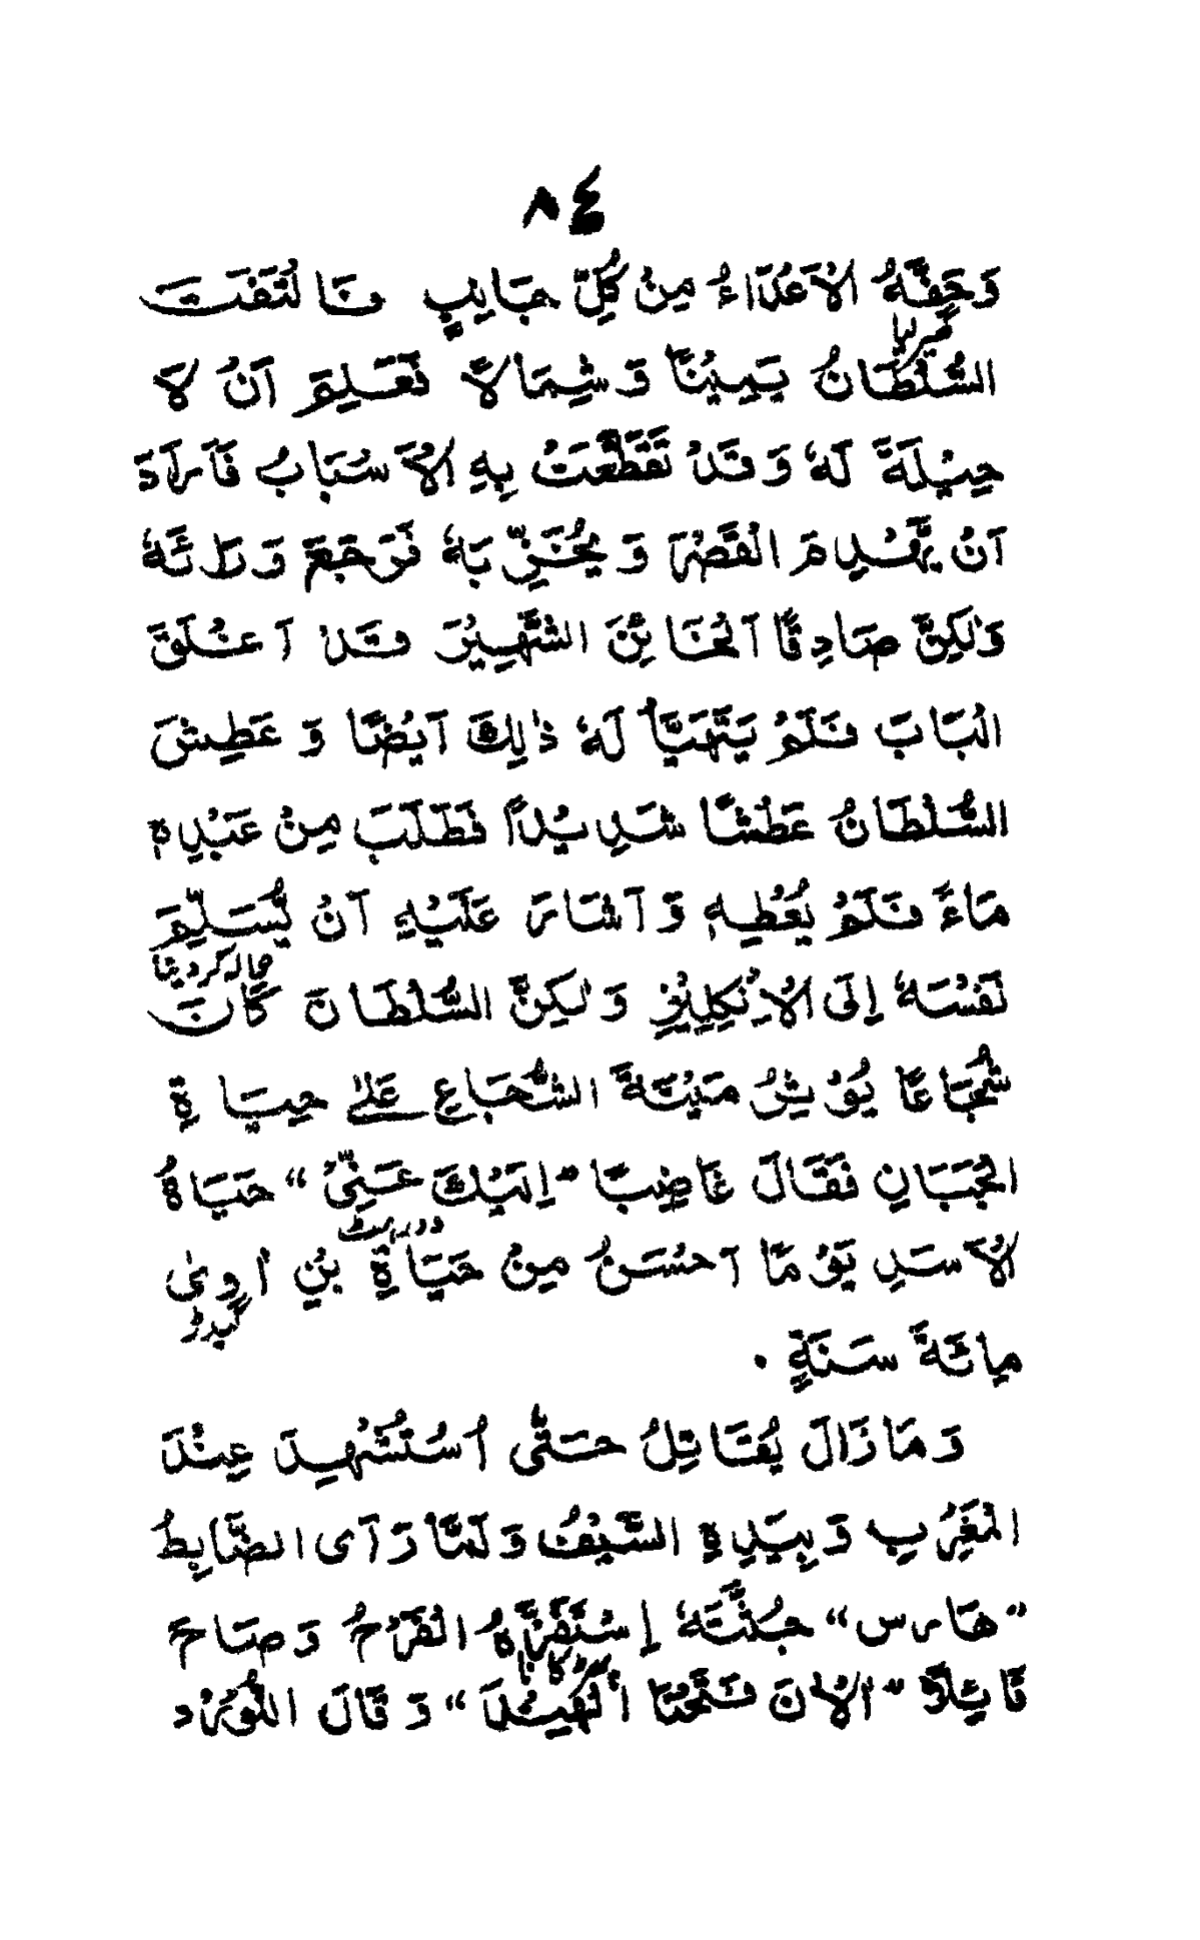 ٨٤
وَحَفَّهُ الْاَعْدَاءُ مِنْ كُلِّ جَانِبٍ فَالْتَفَتَ
گھیر لیا
السُّلْطَانُ يَمِيْنًا وَشِمَالًا فَعَلِمَ اَنْ لَا
حِيْلَةَ لَهٗ وَقَدْ تَقَطَّعَتْ بِهِ الْاَسْبَابُ فَاَرَادَ
اَنْ يَّهْدِمَ الْقَصْرَ وَيُخَرِّبَهٗ فَرَجَعَ وَرَائَهٗ
وَلٰكِنَّ صَادِقًا اَلْخَائِنَ الشَّهِيْرَ قَدْ اَغْلَقَ
الْبَابَ فَلَمْ يَتَهَيَّأْ لَهٗ ذٰلِكَ اَيْضًا وَعَطِشَ
السُّلْطَانُ عَطْشًا شَدِيْدًا فَطَلَبَ مِنْ عَبْدِهٖ
مَاءً فَلَمْ يُعْطِهٖ وَاَشَارَ عَلَيْهِ اَنْ يُّسَلِّمَ
حوالہ کر دینا
نَفْسَهٗ اِلَى الْاِنْكِلِيْزِ وَلٰكِنَّ السُّلْطَانَ كَانَ
شُجَاعًا يُوْثِرُ مَيْتَةَ الشُّجَاعِ عَلٰى حَيَاةِ
الْجَبَانِ فَقَالَ غَاضِبًا "اِلَيْكَ عَنِّىْ" حَيَاةُ
دور ہٹ
الْاَسَدِ يَوْمًا اَحْسَنُ مِنْ حَيَاةِ بْنِ اٰوٰى
گیدڑ
مِائَةَ سَنَةٍ ۰
وَمَا زَالَ يُقَاتِلُ حَتّٰى اُسْتُشْهِدَ عِنْدَ
الْمَغْرِبِ وَبِيَدِهِ السَّيْفُ وَلَمَّا رَآى الضَّابِطُ
"هَارس" جُثَّتَهٗ اِسْتَفَزَّهُ الْفَرْحُ وَصَاحَ
قَائِلًا "اَلْاٰنَ فَتَحْنَا الْهِنْدَ" وَقَالَ اللُّوْرَدْ